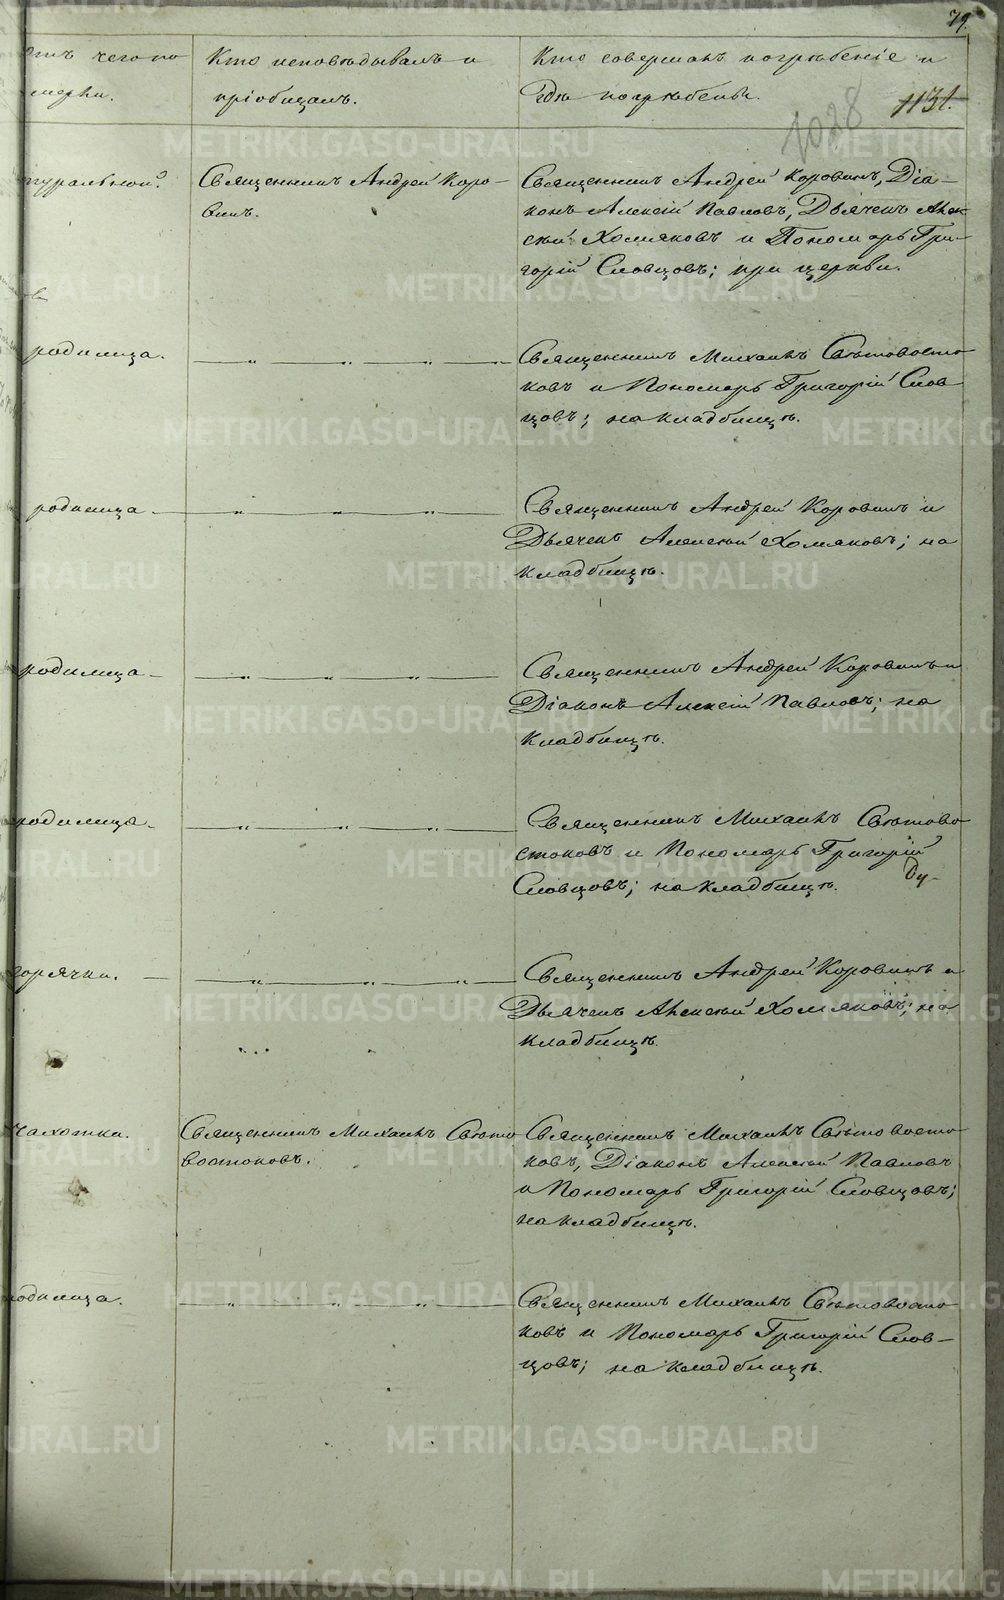 79.
отъ чего по
мерли.
Кто исповѣдывалъ и
пріобщалъ.
Кто совершалъ погребеніе и
гдѣ погребены.
1028
1131.
туральной.
Священникъ Андрей Коро-
винъ.
Священникъ Андрей Коровинъ, Діа-
конъ Алексій Павловъ, Дьячекъ Алек
сѣй Хомяковъ и Пономарь Гри-
горій Словцовъ; при церкви.
родимца.
Священникъ Михаилъ Свѣтовосто
ковъ и Пономарь Григорій Слов
цовъ; на кладбищѣ.
родимца
Священникъ Андрей Коровинъ и
Дьячекъ Алексѣй Хомяковъ; на
кладбищѣ.
родимца
Священникъ Андрей Коровинъ и
Діаконъ Алексій Павловъ; на
кладбищѣ.
родимца
Священникъ Михаилъ Свѣтово
стоковъ и Пономарь Григорій
Словцовъ; на кладбищѣ.
горячки.
Священникъ Андрей Коровинъ и
Дьячекъ Алексѣй Хомяковъ; на
кладбищѣ.
чахотки.
Священникъ Михаилъ Свѣто
востоковъ.
Священникъ Михаилъ Свѣтовосто
ковъ, Діаконъ Алексѣй Павловъ
и Пономарь Григорій Словцовъ;
на кладбищѣ.
родимца.
Священникъ Михаилъ Свѣтовосто
ковъ и Пономарь Григорій Слов-
цовъ; на кладбищѣ.
METRIKI.GASO-URAL.RU